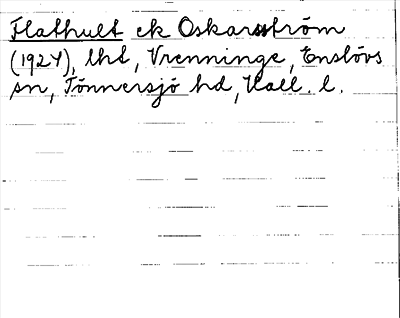 Flathult ek Oskarsström
(1924), lht, Vrenninge, Enslövs
sn, Tönnersjö hd, Hall. l.